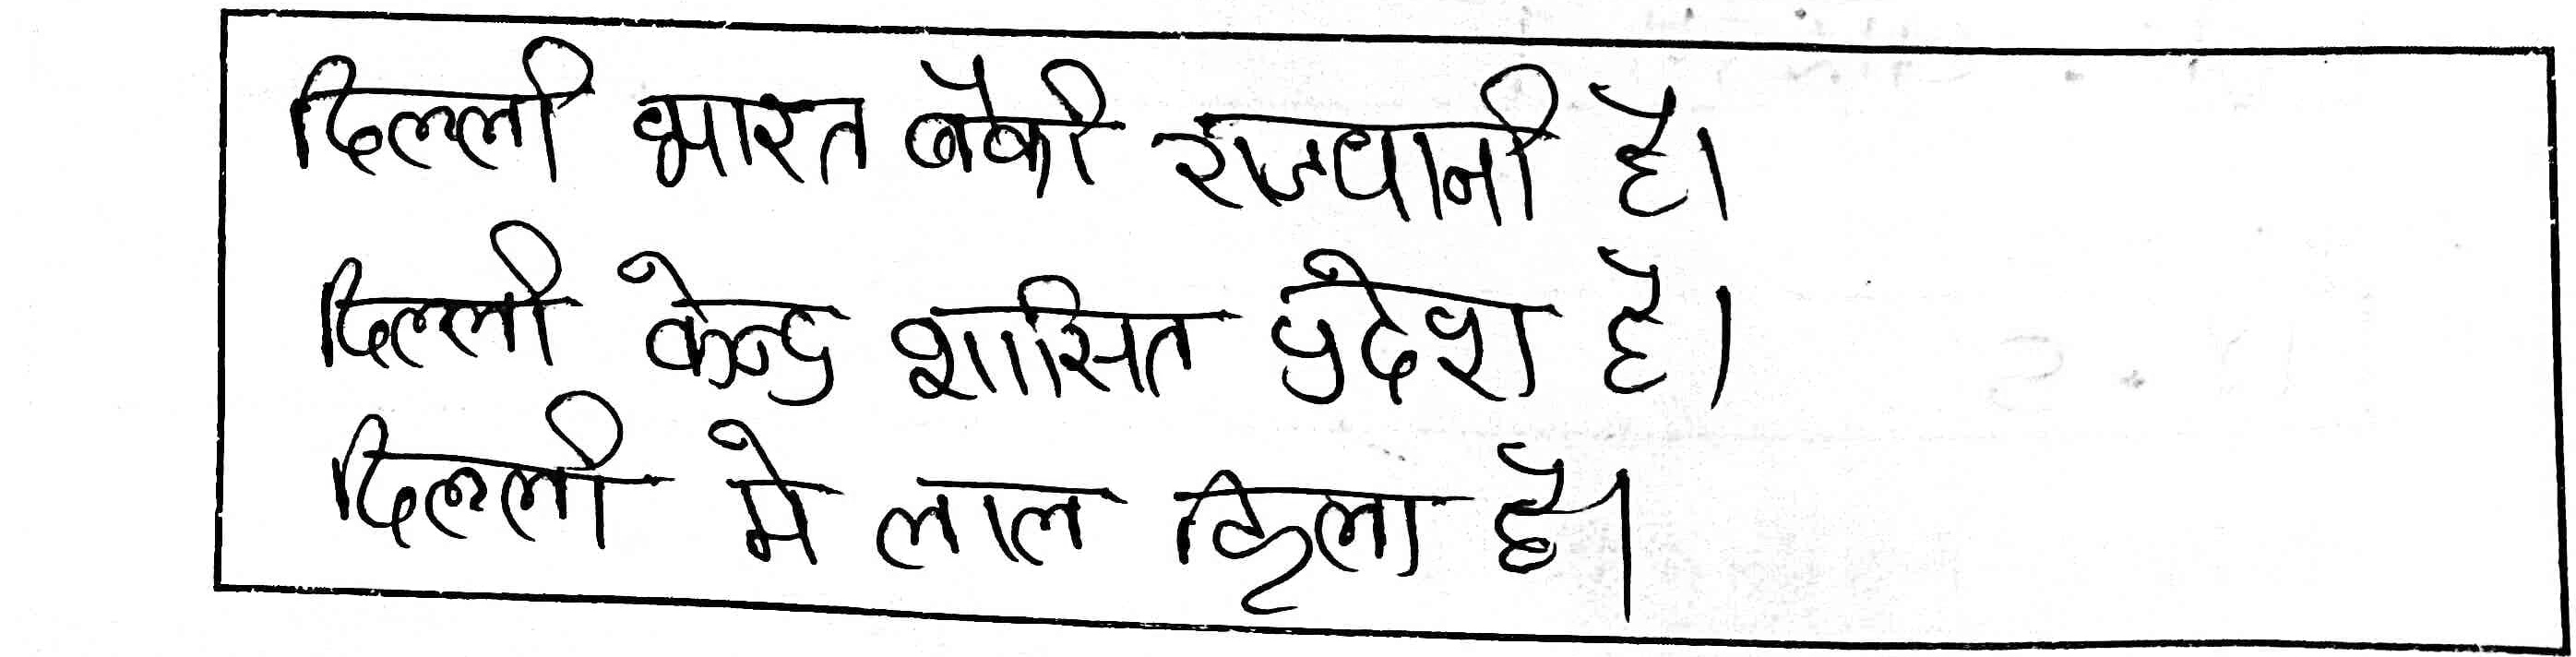 दिल्ली भारत की राजधानी है।
दिल्ली केन्द्र शासित प्रदेश है।
दिल्ली मे लाल किला है।